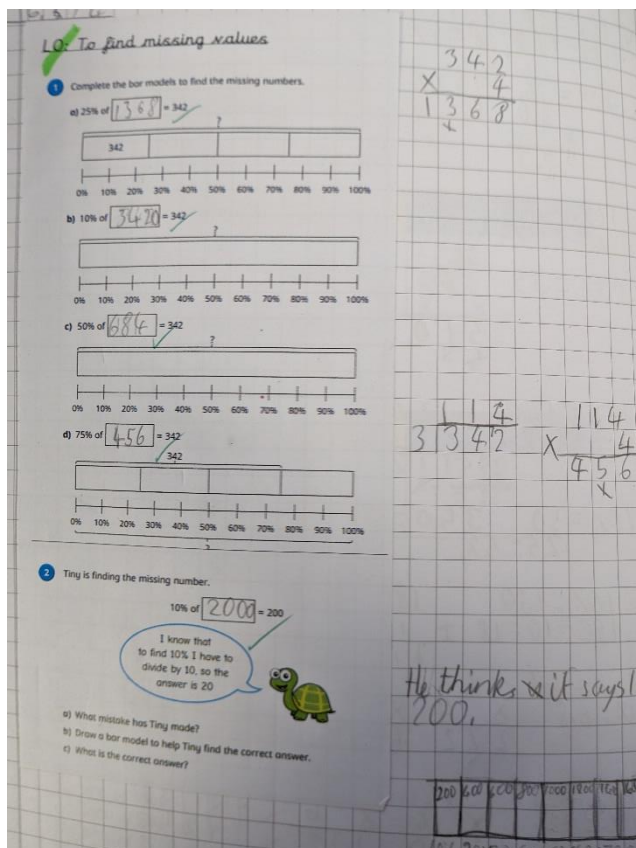 LO: To find missing values
1 Complete the bar models to find the missing numbers.
a) 25% of 1368 = 342
?
342
0% 10% 20% 30% 40% 50% 60% 70% 80% 90% 100%
b) 10% of 3420 = 342
?
0% 10% 20% 30% 40% 50% 60% 70% 80% 90% 100%
c) 50% of 684 = 342
?
0% 10% 20% 30% 40% 50% 60% 70% 80% 90% 100%
d) 75% of 456 = 342
342
0% 10% 20% 30% 40% 50% 60% 70% 80% 90% 100%
?
2 Tiny is finding the missing number.
10% of 2000 = 200
I know that
to find 10% I have to
divide by 10, so the
answer is 20
a) What mistake has Tiny made?
b) Draw a bar model to help Tiny find the correct answer.
c) What is the correct answer?
342
X 4
1368
114
3 342
114
X 4
456
He thinks it says
200.
200 400 600 800 1000